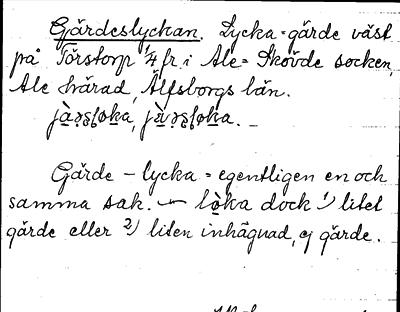 Gärdeslyckan. Lycka = gärde väst
på Torstorp 1/4 fr. i Ale = Skövde socken,
Ale härad, Älfsborgs län.
Gärde – lycka = egentligen en och
samma sak. – løka dock 1) litet
gärde eller 2) liten inhägnad, ej gärde.